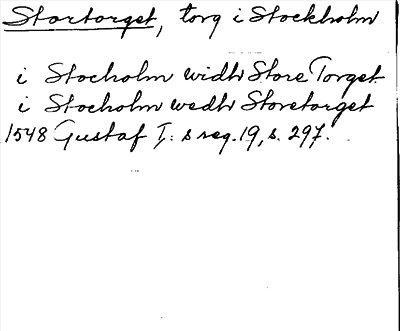 Stortorget, torg i Stockholm
i Stocholm widh Store Torget
i Stocholm wedh Storetorget
1548 Gustaf I:s reg. 19, s. 297.